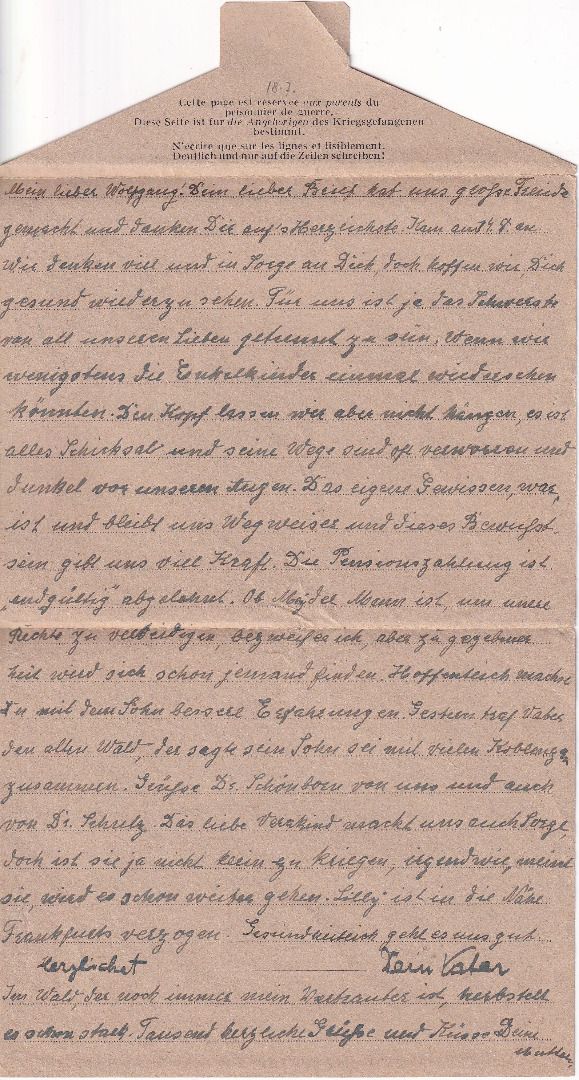 18.7.
Cette page est réservée aux parents du
prisonnier de guerre.
Diese Seite ist für die Angehörigen des Kriegsgefangenen
bestimmt.
N'écrire que sur les lignes et lisiblement.
Deutlich und nur auf die Zeilen schreiben!
Mein lieber Wolfgang! Dein lieber Brief hat uns große Freude
gemacht und danken Dir auf's Herzlichste. Kam am an.
Wir denken viel und in Sorge an Dich, doch hoffen wir Dich
gesund wiederzusehen. Für uns ist ja das Schwerste
von all unseren Lieben getrennt zu sein. Wenn wir
wenigstens die Enkelkinder einmal wiedersehen
könnten. Den Kopf lassen wir aber nicht hängen, es ist
alles Schicksal und seine Wege sind oft verworren und
dunkel vor unseren Augen. Das eigene Gewissen, war,
ist und bleibt uns Wegweiser und dieses Bewußt-
sein gibt uns viel Kraft. Die Pensionszahlung ist
„endgültig" abgelehnt. Ob Mann ist, um unsere
Rechte zu verteidigen, bezweifle ich, aber zu gegebener
Zeit wird sich schon jemand finden. Hoffentlich machst
Du mit dem Sohn bessere Erfahrungen. Gestern traf Vater
den alten Wald, der sagte sein Sohn sei mit vielen Koblenzern
zusammen. Grüße Dr. Schönborn von uns und auch
von Dr. Das liebe macht uns auch Sorge,
doch ist sie ja nicht klein zu kriegen, irgendwie, meint
sie, wird es schon weiter gehen. Lilly ist in die Nähe
Frankfurts verzogen. Gesundheitlich geht es uns gut.
Herzlichst Dein Vater
Im Wald, der noch immer mein ist, herbstelt
es schon stark. Tausend herzliche Grüße und Küsse Deine
Mutter.